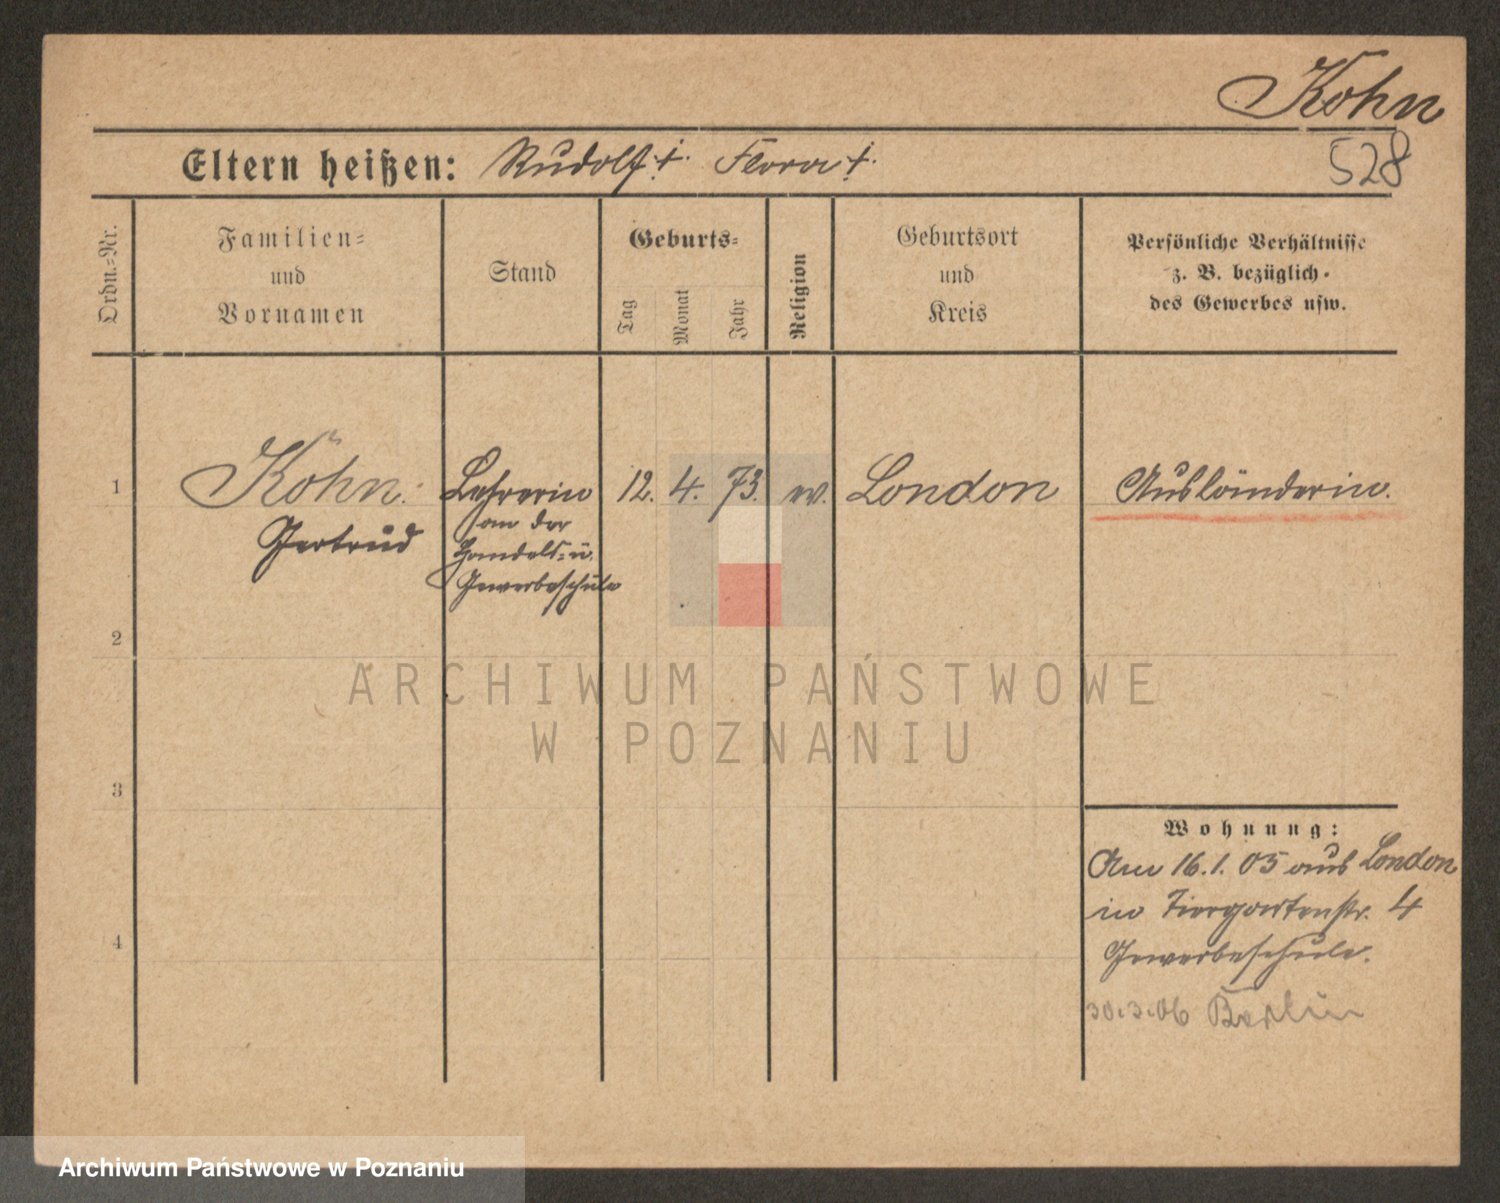 Kohn
528
Eltern heißen: Rudolf †. Flora †.
Ordn.-Nr.
Familien-
und
Vornamen
Stand
Geburts-
Tag
Monat
Jahr
Religion
Geburtsort
und
Kreis
Persönliche Verhältnisse
z. B. bezüglich
des Gewerbes usw.
1 Kohn. Lehrerin 12. 4. 73. ev. London Ausländerin.
Gertrud
an der
Handels- u.
Gewerbeschule
2
3
4
Wohnung:
Am 16.1.05 aus London
in Tiergartenstr. 4
Gewerbeschule.
30.3.06 Berlin
ARCHIWUM PAŃSTWOWE
W POZNANIU
Archiwum Państwowe w Poznaniu